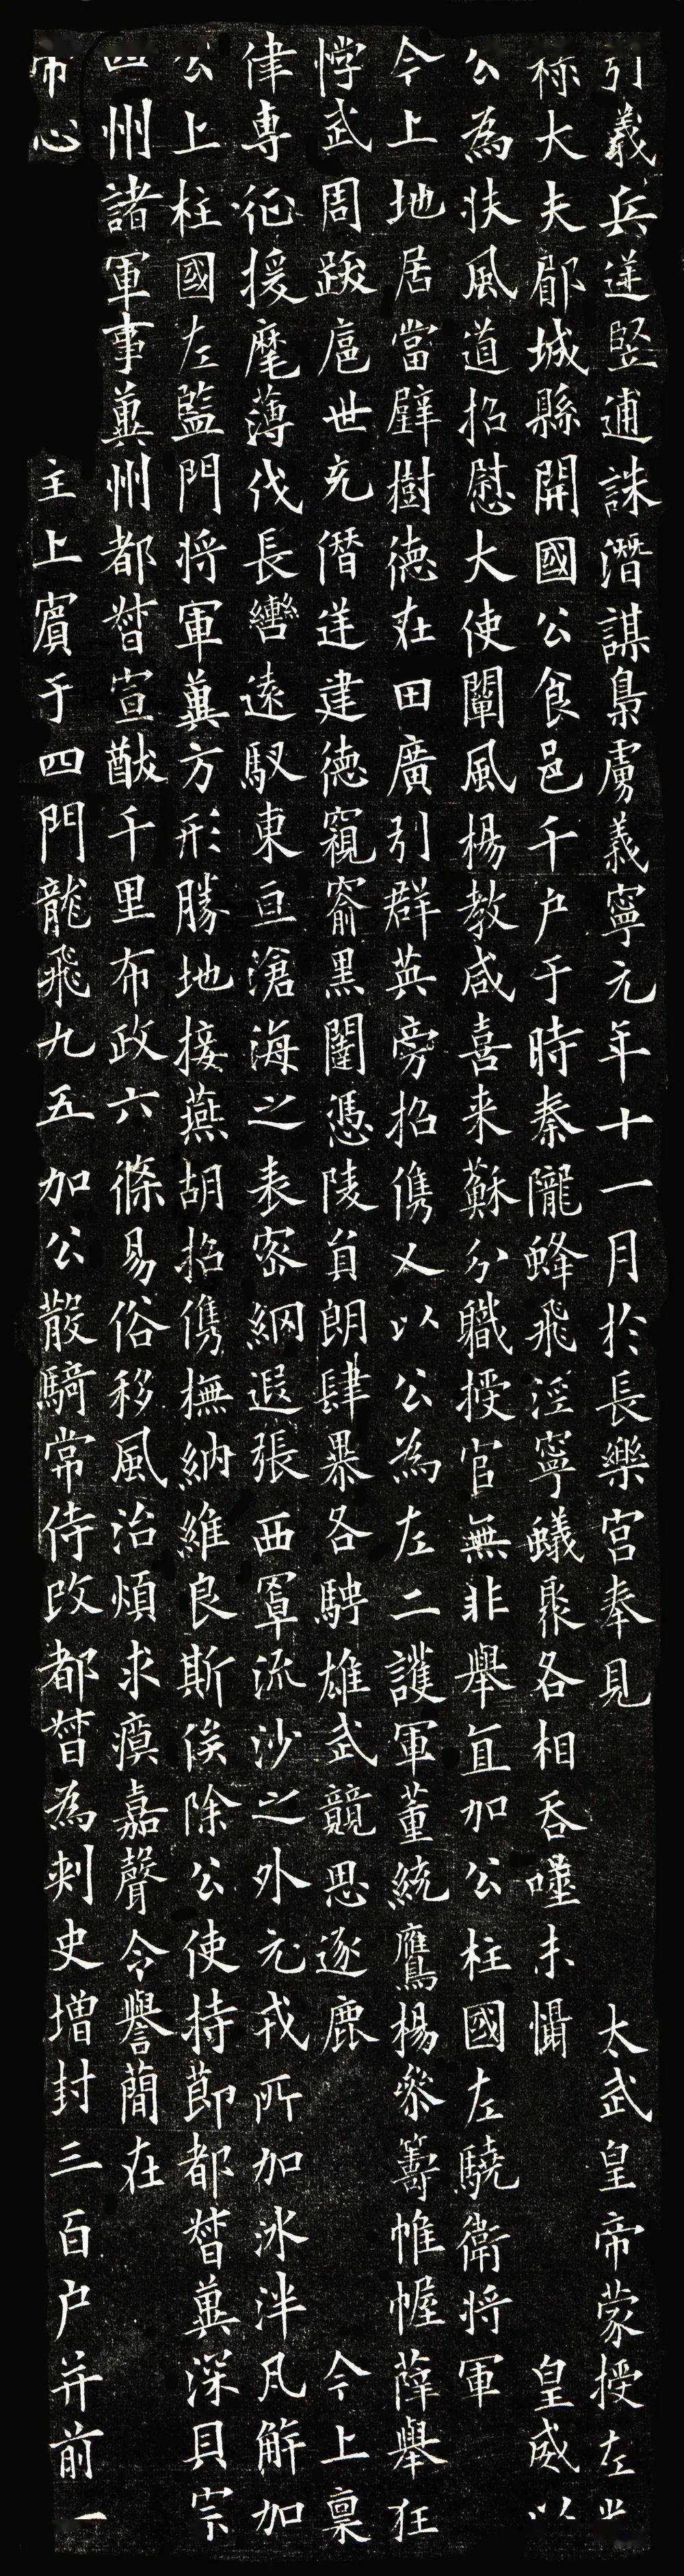 引義兵逆竪逋誅潛謀梟虜義寧元年十一月於長樂宮奉見太武皇帝蒙授左光
祿大夫郿城縣開國公食邑千户于時秦隴蜂飛涇寧蟻聚各相吞噬未懾皇威以
公為扶風道招慰大使闡風楊教咸喜来蘇分職授官無非舉直加公柱國左驍衛將軍
今上地居當璧樹德在田廣引群英旁招儁乂以公為左二護軍董統鷹楊叅籌帷幄薛舉狂
悖武周跋扈世充僭逆建德窺窬黑闥憑陵員朗肆暴各騁雄武競思逐鹿今上稟
律專征援麾薄伐長轡遠馭東亘滄海之表密網遐張西罩流沙之外元戎所加冰泮瓦解加
公上柱國左監門將軍冀方形勝地接燕胡招儁撫納維良斯俟除公使持節都督冀深貝宗
四州諸軍事冀州都督宣猷千里布政六條易俗移風治煩求瘼嘉聲令譽簡在
帝心主上賓于四門龍飛九五加公散騎常侍改都督為刾史增封三百户并前一